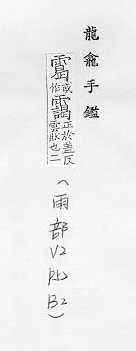 龍龕手鑑
䨠或作靄正於盖反雲狀也二
(雨部V2 B2)